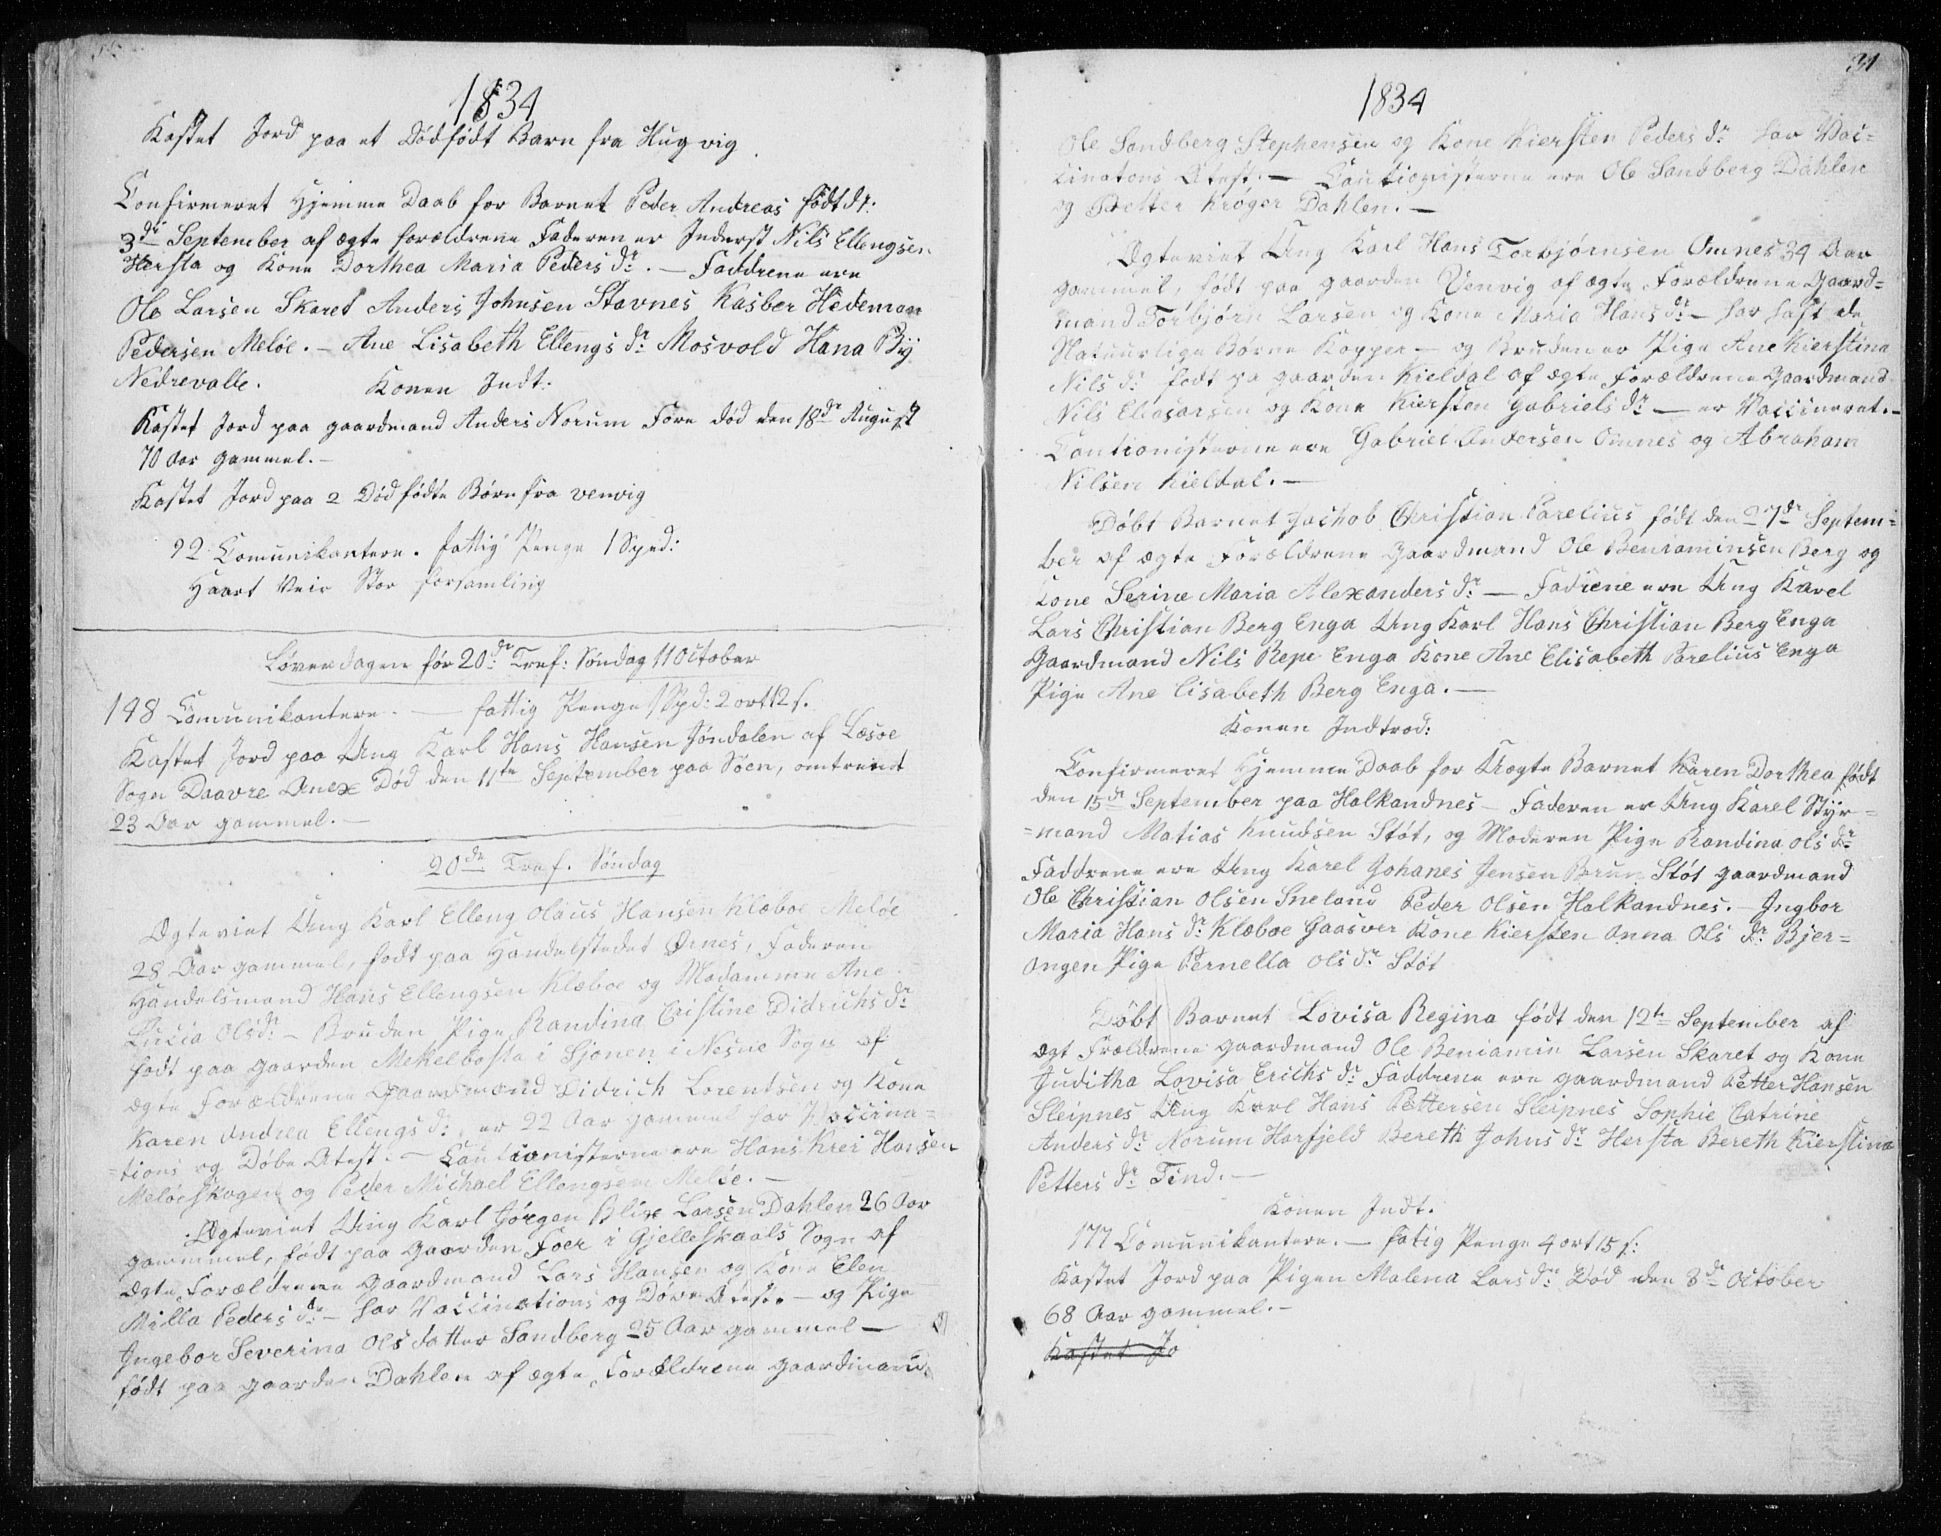 1834
Kastet Jord paa et Dødfødt Barn fra Hugvig
Confirmeret Hjemme Daab for Barnet Peder Andreas født d:
3de September af ægte forældrene Faderen er Inderst Nils Ellengsen
Hersta og Kone Dorthea Maria Peders dr. — Faddrene ere
Ole Larsen Skaret Anders Johnsen Stavnes Kasber Hedeman
Pedersen Meløe. — Ane Lisabeth Ellengs dr Mosvold Hana By
Nedrevalle. Konen Indt:
Kastet Jord paa gaardmand Anders Norum Fore død den 18de August
70 Aar gammel. —
Kastet Jord paa 2 Dødfødte Børn fra venvig
92 Comunikantere. fattig Penge 1 Spd:
Haart Veir Stor forsamling
Løverdagen før 20de Tref: Søndag 11 October
148 Comunikantere. — fattig Penge 1 Spd: 2 ort 12 s.
Kastet Jord paa Ung Karl Hans Hansen Jøndalen af Læsøe
Sogn Daavre Anex Død den 11te September paa Søen, omtrent
23 Aar gammel. —
20de Tref. Søndag
Ægteviet Ung Karl Elleng Olaus Hansen Klæboe Meløe
28 Aar gammel, født paa Handelstedet Ørnes, Faderen
Handelsmand Hans Ellengsen Klæboe og Madamme Ane
Lucia Olsdr: — Bruden Pige Randina Cristine Didrichs dr
født paa gaarden Mekelbosta i Sjonen i Nesne Sogn af
ægte Forældrene Gaardmand Didrich Lorentsen og Kone
Karen Andrea Ellengs dr: er 22 Aar gammel har Vaccina=
=tions og Døbe Atest. — Cautionisterne ere Hans Krei Hansen
Meløeskogen og Peder Michael Ellengsen Meløe. —
Ægteviet Ung Karl Jørgen Blix Larsen Dahlen 26 Aar
gammel, født paa Gaarden Foer i Gjelleskaals Sogn af
Ægte Forældrene Gaardmand Lars Hansen og Kone Elen
Milla Peders dr — har Vaccinations og Døbe Atest. — og Pige
Ingebor Severina Olsdatter Sandberg 25 Aar gammel —
født paa gaarden Dahlen af ægte Forældrene gaardmand
31
1834
Ole Sandberg Stephensen og Kone Kiersten Peders dr har Vac=
cinations Atest. — Cautionisterne ere Ole Sandberg Dahlen
og Petter Krøger Dahlen. —
Ægteviet Ung Karl Hans Torbjørnsen Omnes 34 Aar
gammel, født paa gaarden Venvig af ægte Forældrene Gaard=
mand Torbjørn Larsen og Kone Maria Hans dr — har haft de
Natuurlige Børne Kopper — og Bruden er Pige Ane Kierstina
Nils dr født pa gaarden Kieldal af ægte Forældrene Gaardmand
Nils Eliasarsen og Kone Kiersten Gabriels dr — er Vaccineret. —
Cautionisterne ere Gabriel Andersen Omnes og Abraham
Nilsen Kieldal. —
Døbt Barnet Jachob Christian Parelius født den 27de Septem=
ber af ægte Forældrene Gaardmand Ole Beniaminsen Berg og
Kone Serine Maria Alexanders dr — Fadrene ere Ung Karel
Lars Christian Berg Enga Ung Karl Hans Christian Berg Enga
Gaardmand Nils Repe Enga Kone Ane Elisabeth Parelius Enga
Pige Ane Lisabeth Berg Enga. —
Konen Indtrod:
Confirmeret Hjemme Daab for Uægte Barnet Karen Dorthea født
den 15de September paa Halkandnes — Faderen er Ung Karel Styr=
=mand Matias Knudsen Støt, og Moderen Pige Randina Ols dr
Faddrene ere Ung Karel Johanes Jensen Brun Støt gaardmand
Ole Christian Olsen Sneland Peder Olsen Halkandnes. — Ingbor
Maria Hans dr Klæboe Gaasver Kone Kiersten Anna Ols dr Bjer=
angen Pige Pernella Ols dr Støt
Døbt Barnet Lovisa Regina født den 12te September af
ægt Frældrene gaardmand Ole Beniamin Larsen Skaret og Kone
Juditha Lovisa Erichs dr Faddrene ere gaardmand Petter Hansen
Sleipnes Ung Karl Hans Pettersen Sleipnes Sophie Catrine
Anders dr Norum Harfjeld Bereth Johns dr Hersta Bereth Kierstina
Petters dr Tind. —
Konen Indt.
177 Comunikantere. — fatig Penge 4 ort 15 s:
Kastet Jord paa Pigen Malena Lars dr: Død den 3de October
68 Aar gammel. —
Kastet Jo